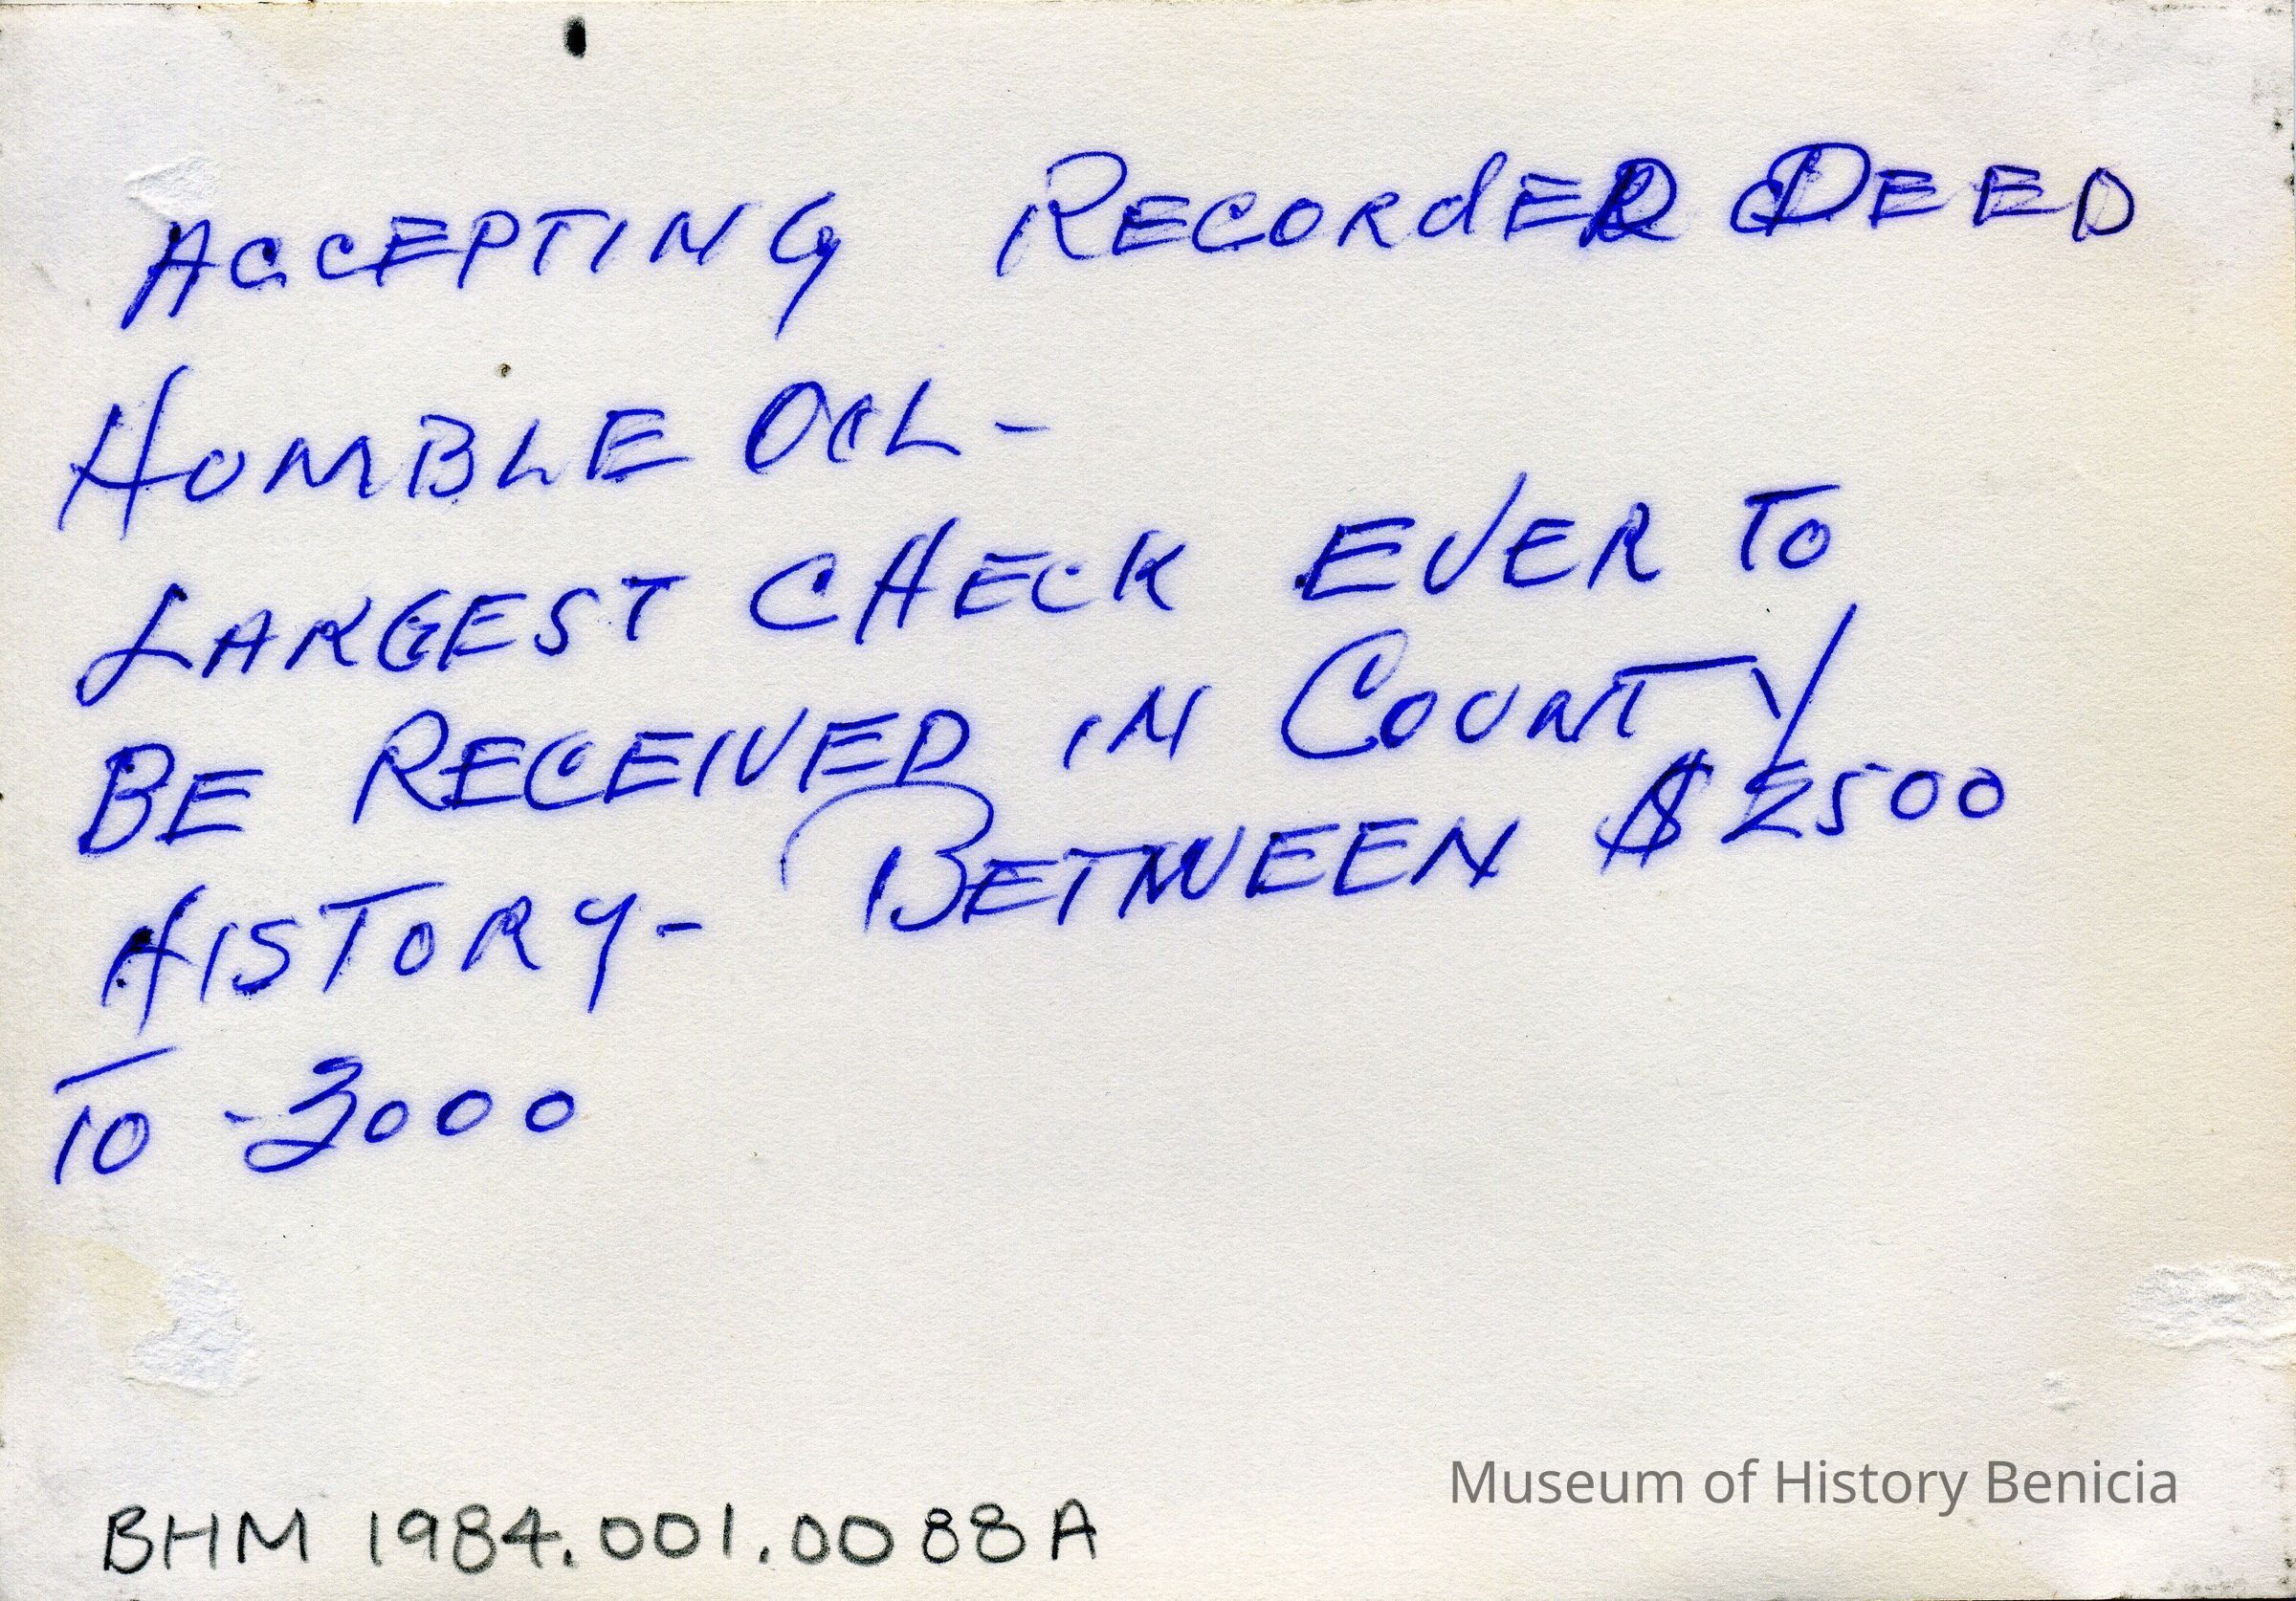 ACCEPTING RECORdER DEED
HUMBLE OIL -
LARGEST CHECK EVER TO
BE RECEIVED IN COUNTY
HISTORY - BETWEEN $2500
TO - 3000
BHM 1984.001.0088A
Museum of History Benicia